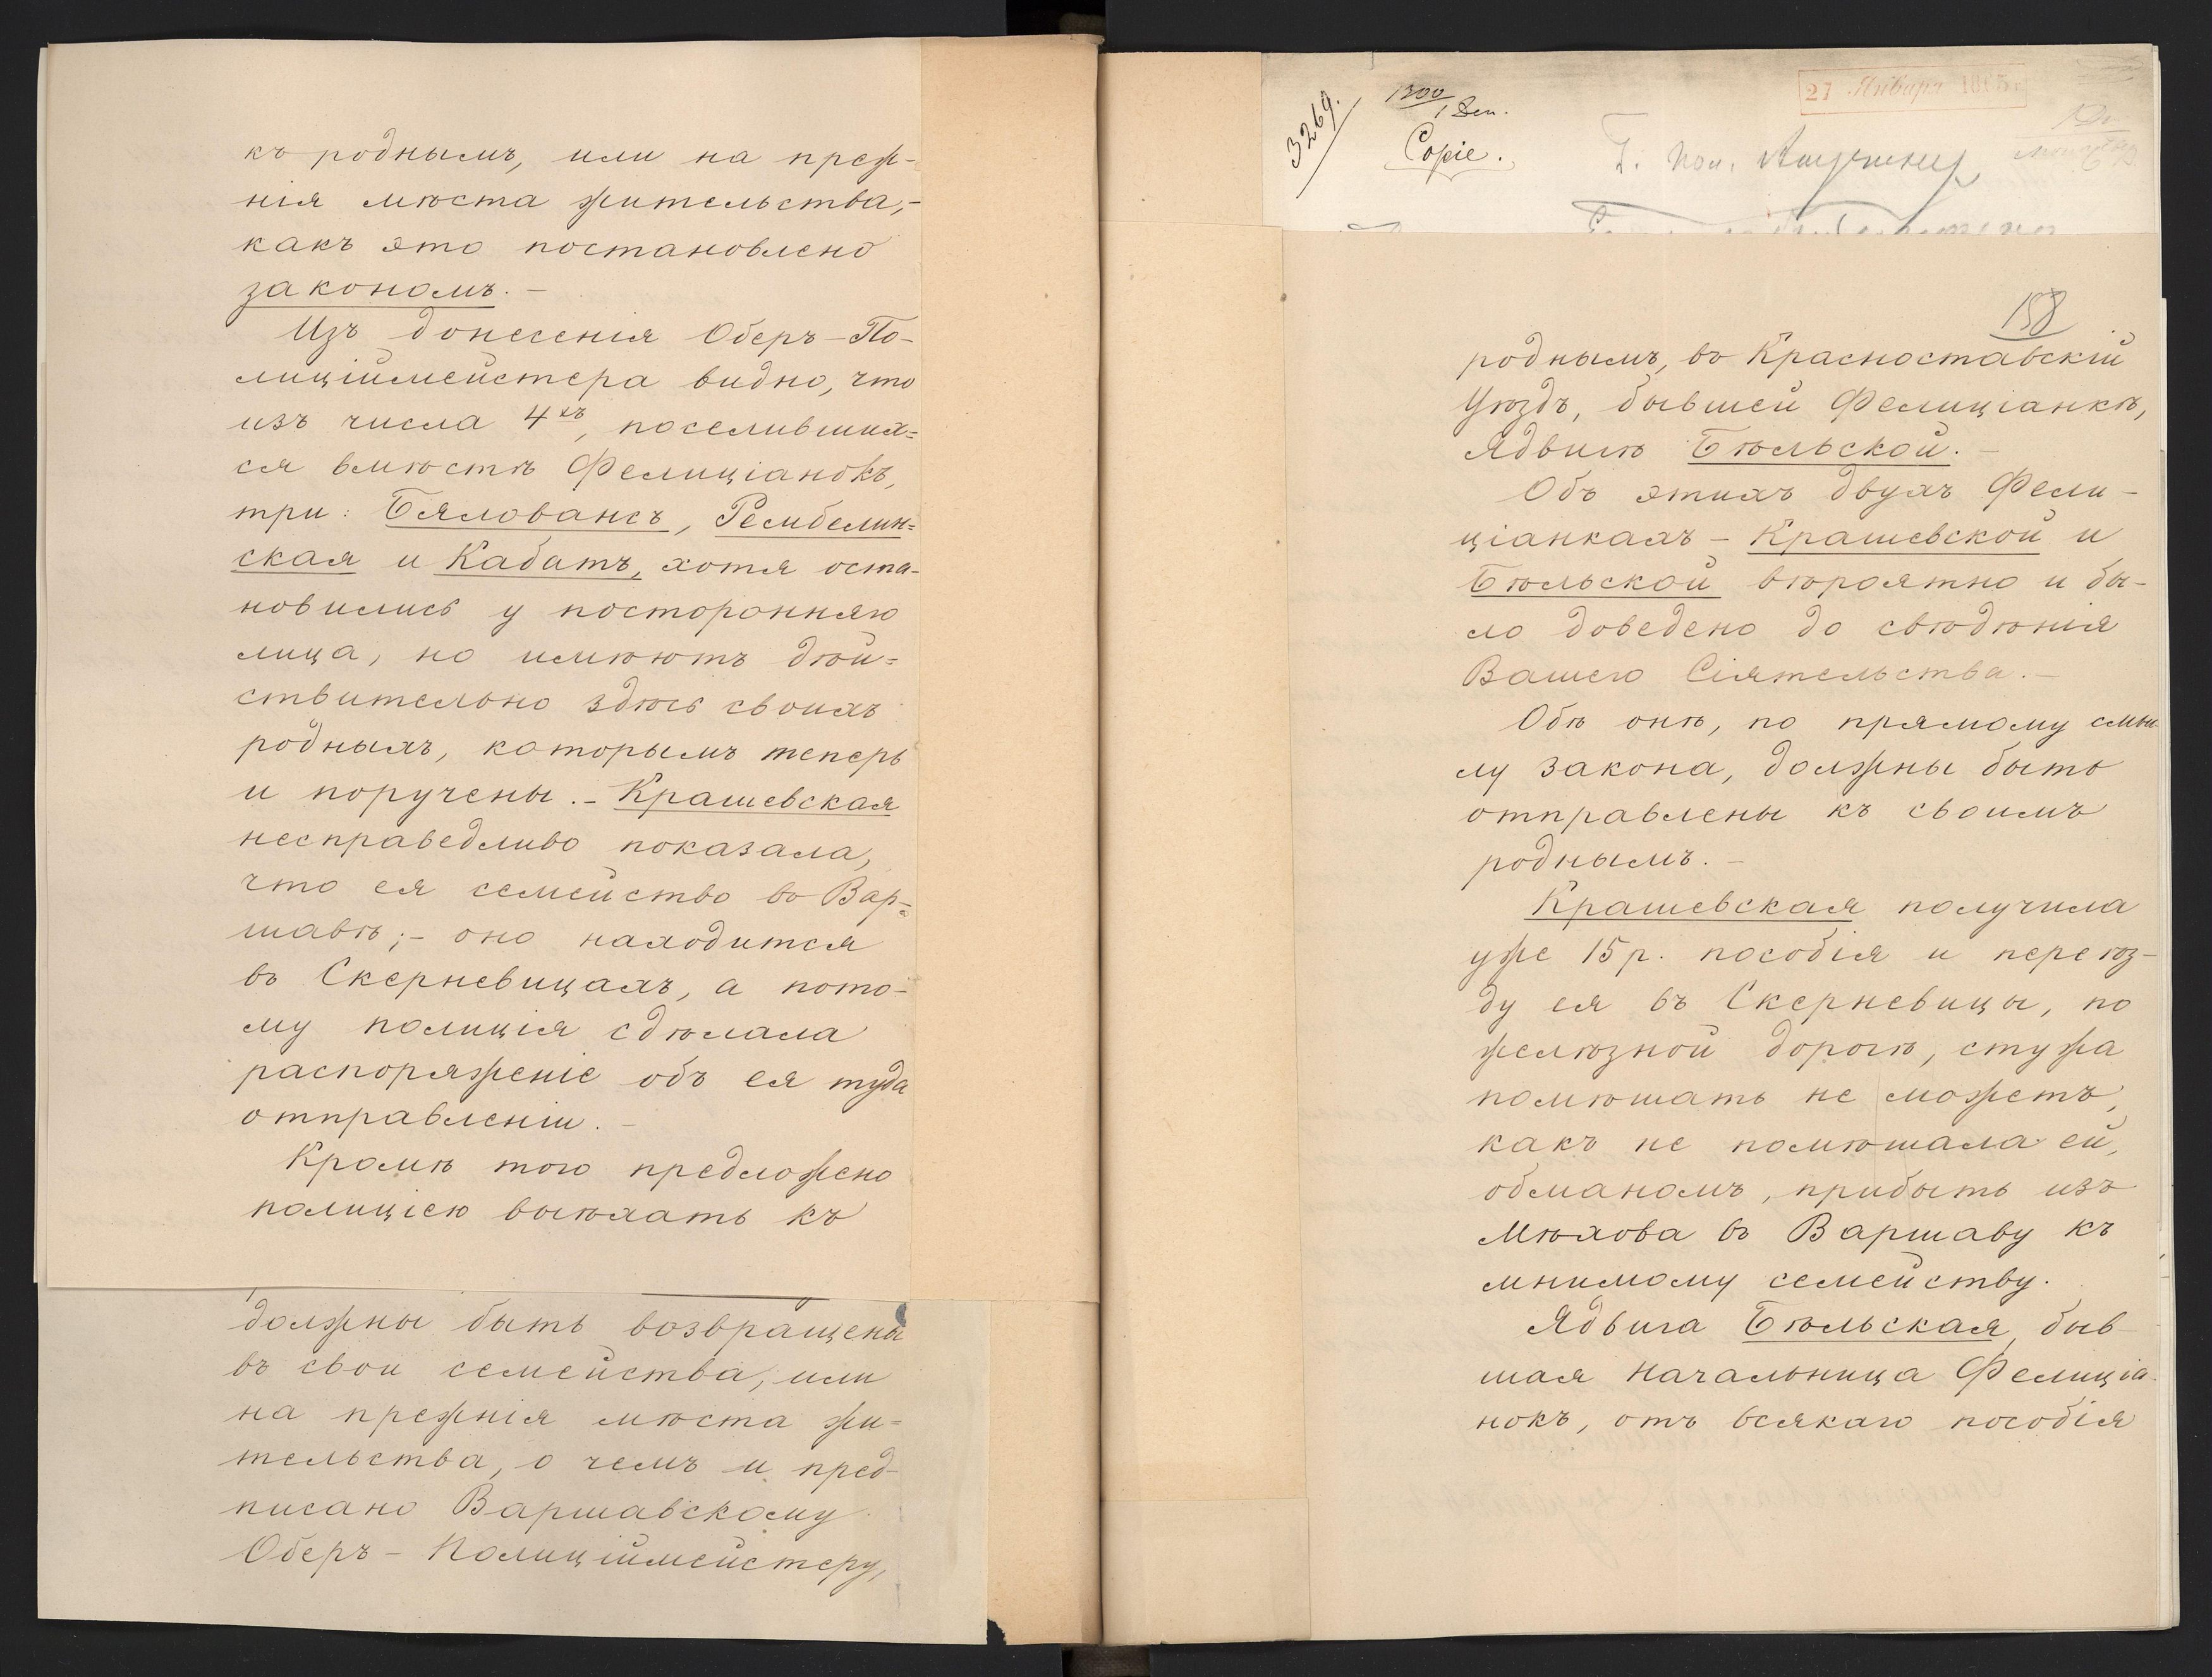 къ роднымъ, или на преж-
нія мѣста жительства,-
какъ это постановлено
закономъ.-
Изъ донесенія Оберъ-По-
лиціймейстера видно, что
изъ числа 4хъ, поселивших=
ся вмѣстѣ Фелиціанокъ,
три: Бяловансъ, Рембелин=
ская и Кабатъ, хотя оста-
новились у посторонняго
лица, но имѣютъ дѣй=
ствительно здѣсь своихъ
родныхъ, которымъ теперь
и поручены.- Крашевская
несправедливо показала,
что ея семейство въ Вар=
шавѣ;- оно находится
въ Скерневицахъ, а пото-
му полиція сдѣлала
распоряженіе объ ея туда
отправленіи.-
Кромѣ того предложено
полиціею выѣхать къ
должны быть возвращены
въ свои семейства, или
на прежнія мѣста жи=
тельства, о чемъ и пред-
писано Варшавскому
Оберъ-Полиціймейстеру,
3269.
1300
1 Ден.
Copie.
27 Января 1865 г.
158
роднымъ, въ Красноставскій
Уѣздъ, бывшей Фелиціанкѣ,
Ядвигѣ Бѣльской.-
Объ этихъ двухъ Фели-
ціанкахъ - Крашевской и
Бѣльской вѣроятно и бы-
ло доведено до свѣдѣнія
Вашего Сіятельства.-
Обѣ онѣ, по прямому смы-
лу закона, должны быть
отправлены къ своимъ
роднымъ.-
Крашевская получила
уже 15 р. пособія и переѣз-
ду ея въ Скерневицы, по
желѣзной дорогѣ, стужа
помѣшать не можетъ,
какъ не помѣшала ей,
обманомъ, прибыть изъ
Мѣхова въ Варшаву къ
мнимому семейству.
Ядвига Бѣльская, быв-
шая Начальница Фелиціа-
нокъ, отъ всякаго пособія